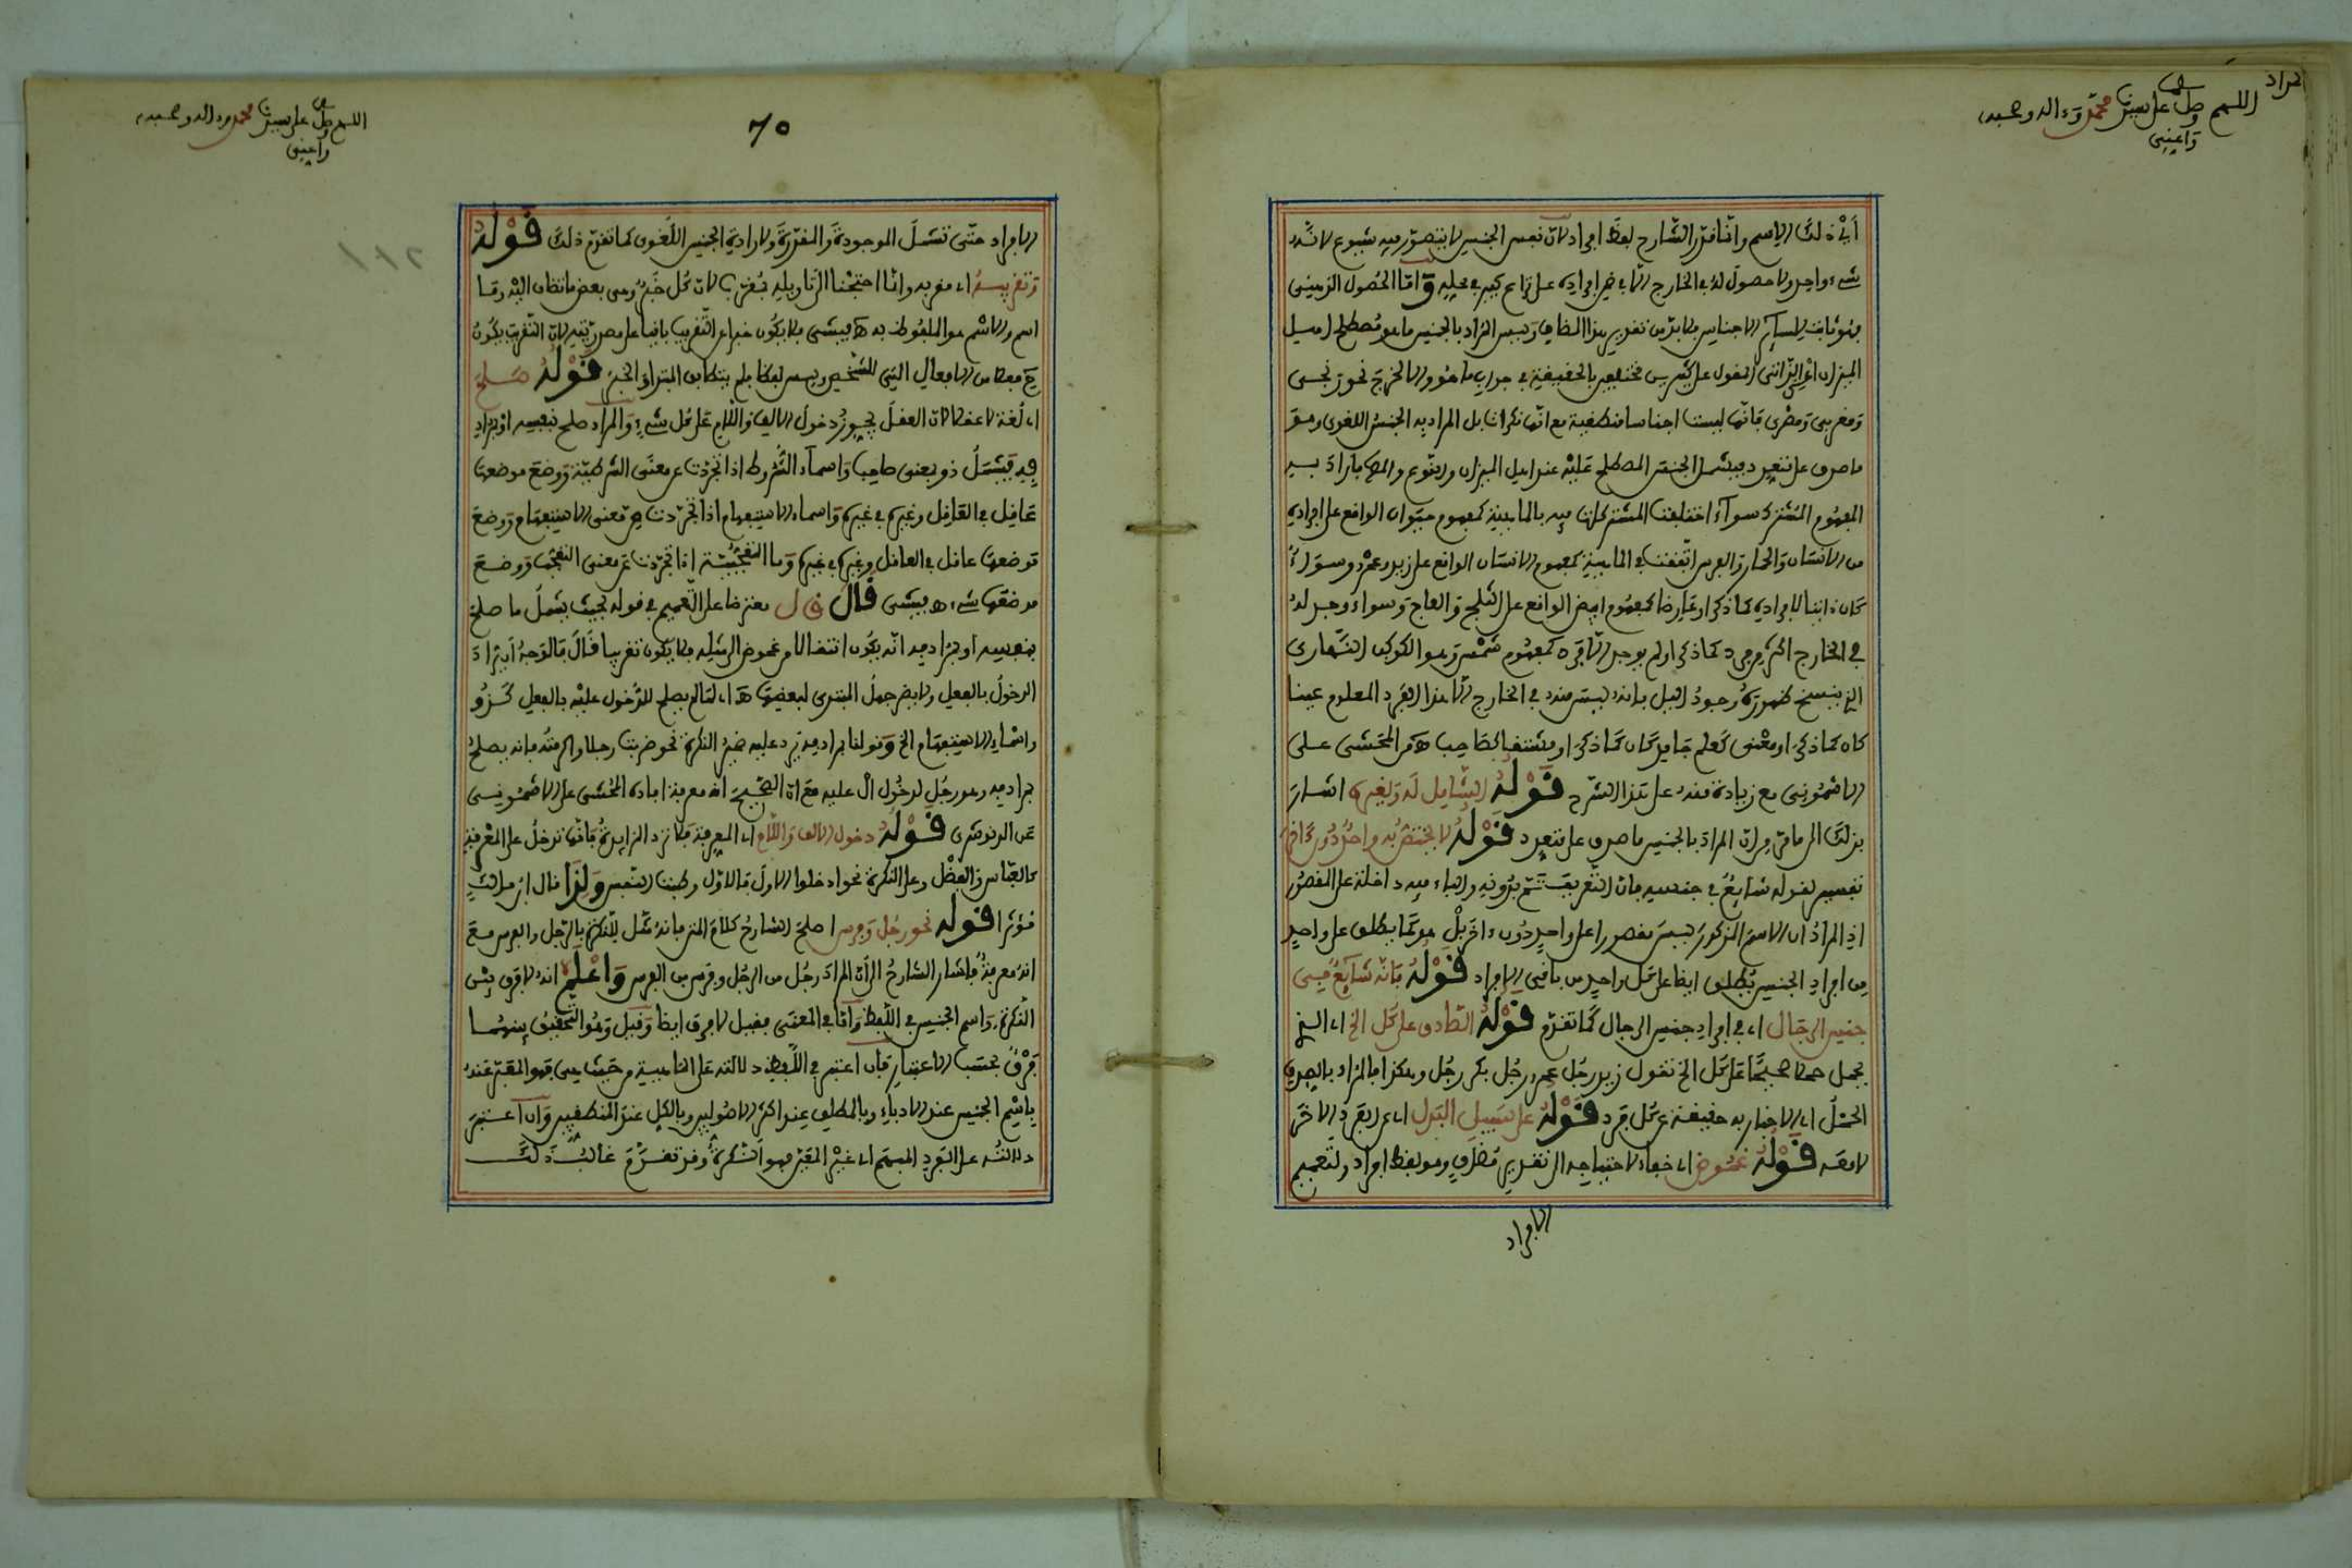 مراد
اللهم صل وسلم على سيدنا محمد وءاله وصحبه
وأعني
أي ذلك الاسم وانما قدر الشارح لفظ افراد لان نفس الجنس لا يتصور فيه شيوع لانه
شيء واحد ولا حصول له في الخارج الا في ضمن افراده على نزاع كبير في محله واما الحصول الذهني
الاجناس فلا بد من تقدير هذا المضاف وليس المراد بالجنس ما هو مصطلح اهل
الميزان المقول على كثيرين مختلفين بالحقيقة في جواب ما هو والا لخرج نحو
ومغربي ومصري فانها ليست اجناسا منطقية مع انها نكرات بل المراد به الجنس اللغوي وهو
ما صدق على متعدد فيشمل الجنس المصطلح عليه عند اهل الميزان والنوع والمراد به
المفهوم المشترك سواء اختلفت المشتركات فيه بالماهية كمفهوم حيوان الواقع على افراده
من الانسان والحمار والفرس او اتفقت في الماهية كمفهوم الانسان الواقع على زيد وعمرو وسواء
كان ذاتيا لافراده كما ذكر او عارضا كمفهوم ابيض الواقع على الثلج والعاج وسواء وجد له
في الخارج اكثر من فرد كما ذكر او لم يوجد الا فرد كمفهوم شمس وهو الكوكب النهاري
الذي ينسخ ظهوره وجود الليل فانه ليس منه في الخارج الا هذا الفرد المعلوم عينا
كان كما ذكر او معنى كعلم جامدا كان كما ذكر او مشتقا كصاحب اه من المحشي على
الاشموني مع زيادة منه على هذا الشرح قوله الشامل له ولغيره اشار
بذلك الى ما مر من ان المراد بالجنس ما صدق على متعدد قوله لا يختص به واحد دون ءاخر
تفسير لقوله شائع في جنسه فان التعريف تم بدونه والباء فيه داخلة على المقصور
اذ المراد ان الاسم المذكور ليس مقصورا على واحد دون ءاخر بل هو كما يطلق على واحد
من افراد الجنس يطلق ايضا على كل واحد من باقي الافراد قوله فانه شائع في
جنس الرجال اي في افراد جنس الرجال كما تقدم قوله الصادق على كل الخ اي الذي
يحمل حملا صحيحا على كل الخ تقول زيد رجل عمرو رجل بكر رجل وهكذا فالمراد بالصدق
الحمل اي الاخبار به حقيقة عن كل فرد قوله على سبيل البدل اي عن الفرد الاخر
لا معه قوله غموض اي خفاء لاحتياجه الى تقدير مضاف وهو لفظ افراد ولتعميم
الافراد
٦٥
اللهم صل وسلم على سيدنا محمد وءاله وصحبه
وأعني
الافراد حتى تشمل الموجودة والمقدرة ولارادة الجنس اللغوي كما تقدم ذلك قوله
وتقريبه اي مقربه وانما احتجنا الى تاويله بمقرب لان كل خبره وهي بعض ما تضاف اليه وما
اسم والاسم هو الملفوظ به اه فيشي فلا يكون خبرا عن التقريب باقيا على مصدريته لان التقريب يكون
قوله صلح
اي لغة لا عقلا لان العقل يجوز دخول الالف واللام على كل شيء والمراد صلح بنفسه او مرادفه
فيشمل ذو بمعنى صاحب واسماء الشروط اذا تجردت عن معنى الشرطية ووضع موضعها
عاقل في العاقل وغيره في غيره واسماء الاستفهام اذا تجردت من معنى الاستفهام ووضع
موضعها عاقل في العاقل وغيره في غيره وما التعجبية اذا تجردت عن معنى التعجب ووضع
موضعها شيء اه فيشي قال معترضا على التعميم في قوله بحيث يشمل ما صلح
بنفسه او مرادفه انه يكون انتقالا من غموض الى مثله فلا يكون تقريبا قال فالوجه ان يراد
الدخول بالفعل ولا يضر جهل المبتدي لبعضها اه لما لم يصلح للدخول عليه بالفعل كذو
واسماء الاستفهام الخ وقولنا مرادفه يرد عليه ضمير النكرة نحو ضربت رجلا واكرمته فانه يصلح
مرادفه وهو رجل لدخول ال عليه مع ان الصحيح انه معرفة افاده المحشي على الاشموني
عن الدنوشري قوله دخول الالف واللام اي المعرفة فلا ترد الزايدة فانها تدخل على المعرفة
كالعباس والفضل وعلى النكرة نحو ادخلوا الاول فالاول وطبت النفس ولذا قال ابن مالك
مؤثرا قوله نحو رجل وفرس اصلح الشارح كلام المتن فانه مثل للنكرة بالرجل والفرس مع
انه معرفة فاشار الشارح الى ان المراد رجل من الرجل وفرس من الفرس واعلم انه لا فرق بين
النكرة واسم الجنس في اللفظ واما في المعنى فقيل لا فرق ايضا وقيل وهو التحقيق بينهما
فرق بحسب الاعتبار فان اعتبر في اللفظ دلالته على الماهية من حيث هي فهو المعبر عنه
باسم الجنس عند الادباء وبالمطلق عند اكثر الاصوليين وبالكلي عند المنطقيين وان اعتبر
دلالته على الفرد المبهم اي غير المعين فهو النكرة وقد تقدم غالب ذلك